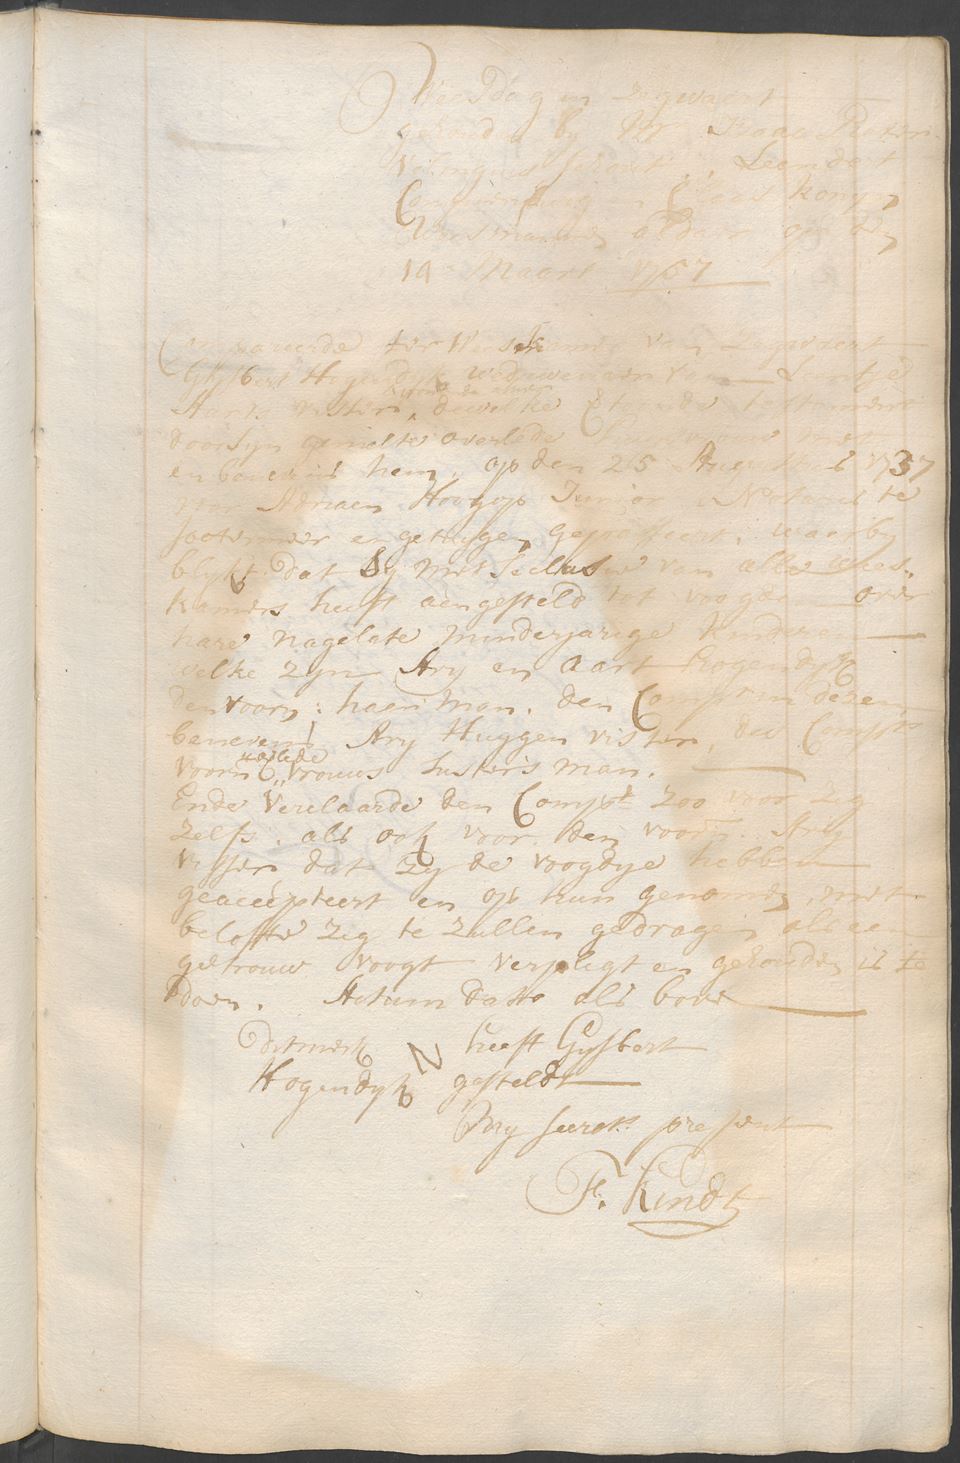 Weesdag in Zegwaart
gehouden by Hr Isaac
schout, Leendert
en Claas Konijn
Weesmannen aldaar op den
19 Maart 1767
Compareerde ter Weeskamer van Zegwaart
Gijsbert Hogendijk weduwenaer van Leentje
Aarts Visser, dewelke testament
door syn gemelte overlede huijsvrouw met
en benevens hem, op den 25 Augustus 1737
voor Adriaen Hoogop Junior Notaris te
Soetermeer en getuijgen gepasseert; waarby
blykt dat Sy met seclusie van alle wees„
kamers heeft aengesteld tot voogden over
hare nagelate minderjarige kinderen
welke zyn Ary en Aart Hogendijk
den voorn: haer man, den Compt in dezen
benevens Ary Huygen Visser, des Compts
voorn overlede vrouws susters man.
Ende verclaarde den Compt zoo voor zig
zelfs, als ook voor den voorn. Arij
Visser dat zy de voogdye hebben
geaccepteert en op hun genomen, met
belofte zig te zullen gedragen als een
getrouw voogt verpligt en gehouden is te
doen. Actum datto als boven
Dit merk N heeft Gijsbert
Hogendijk gesteldt
My secrets. present
F. Kindt